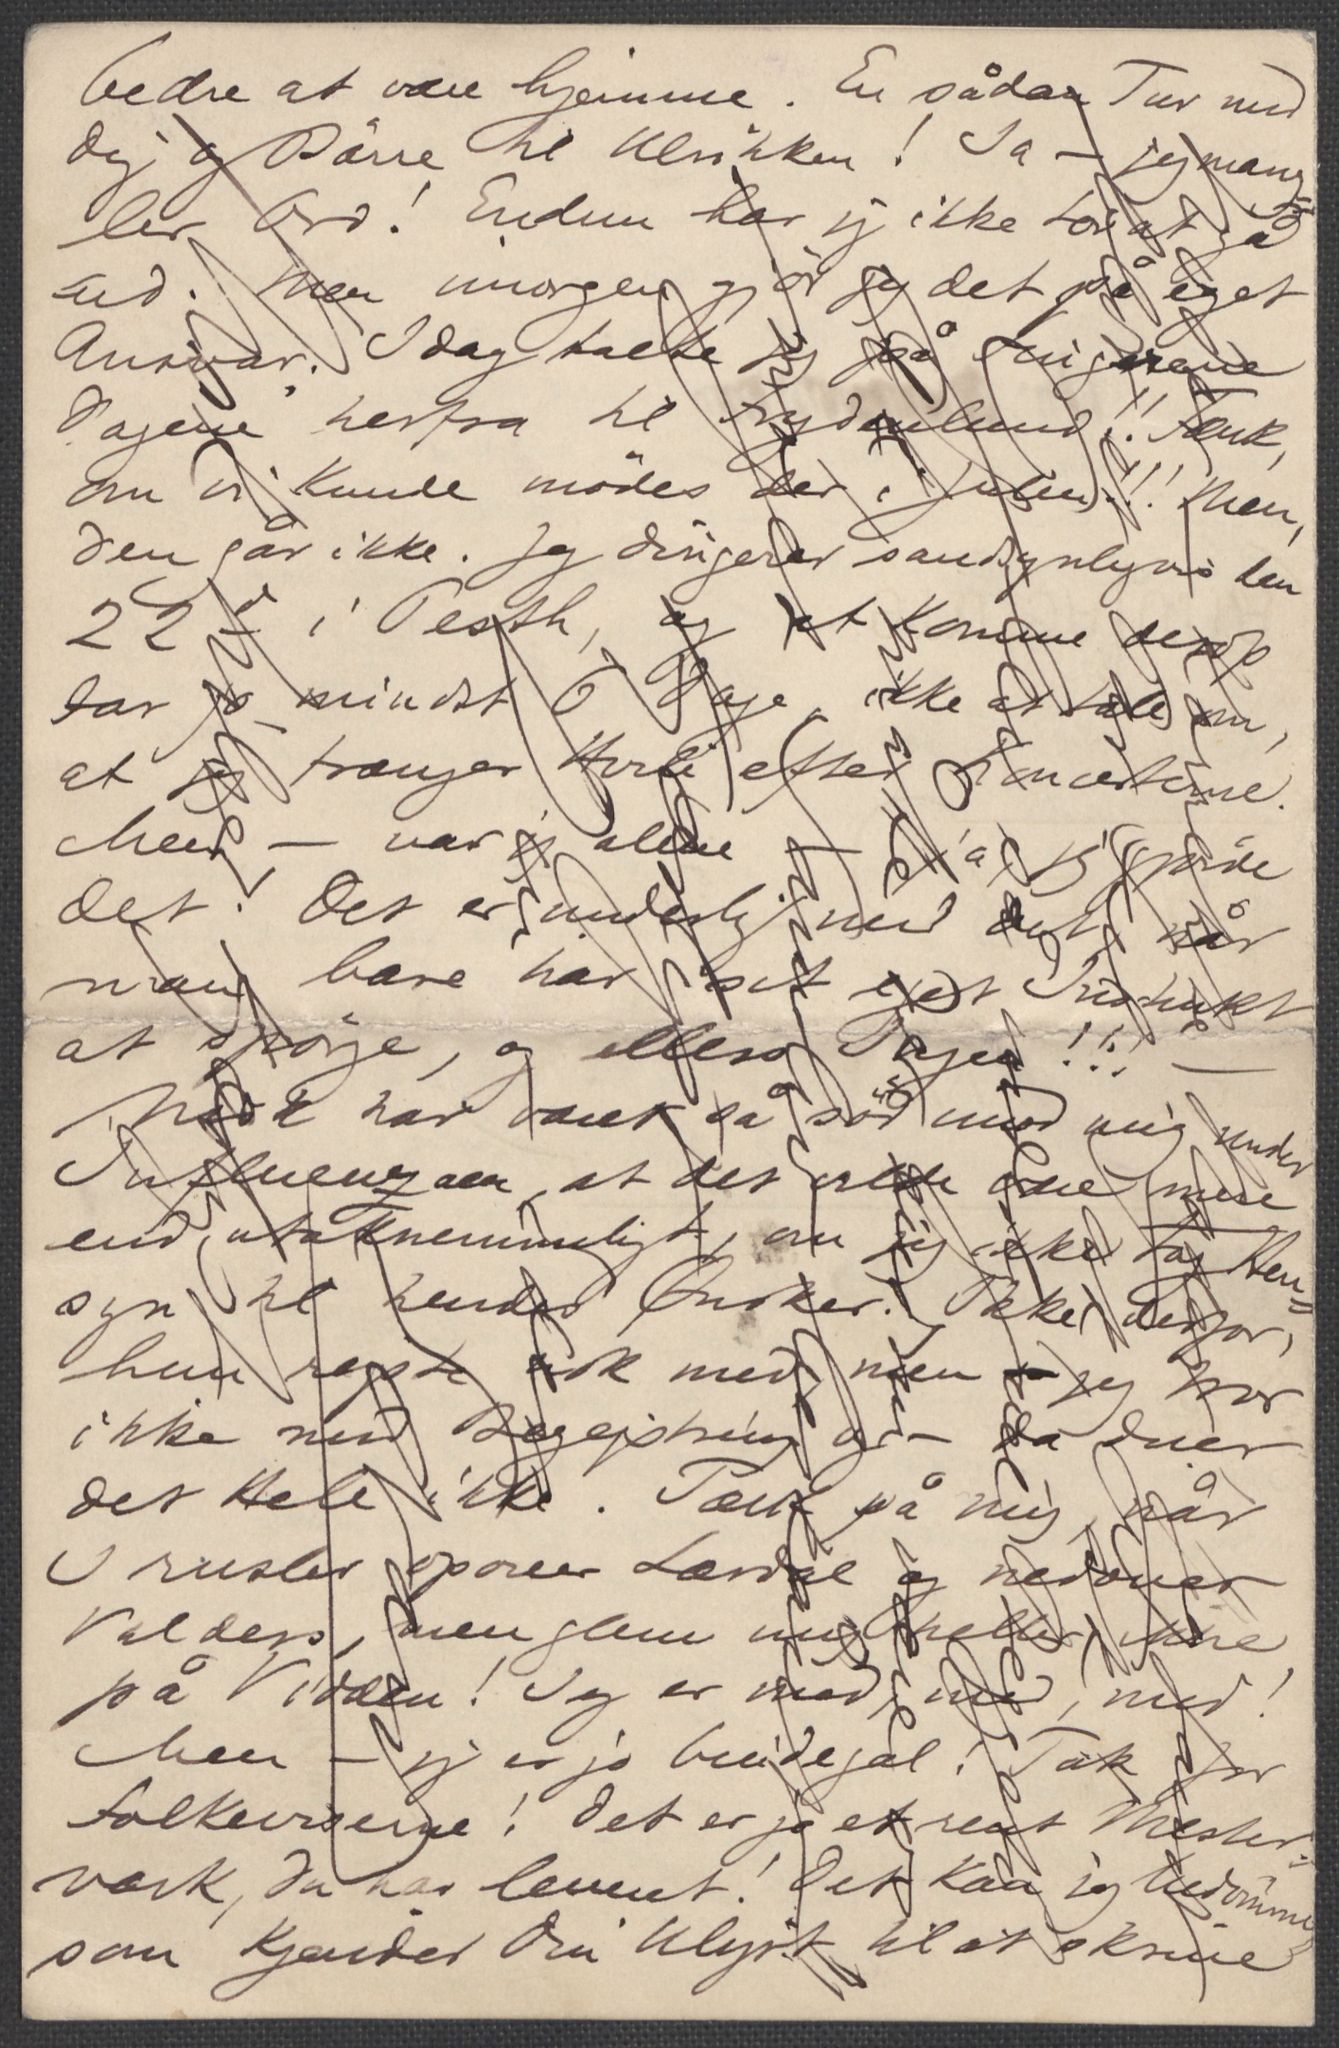 bedre at være hjemme. En sådan Tur med
dig og Börre til Ulrikken! Ja – jeg mang=
ler Ord! Endnu har jeg ikke Lov at gå
ud. Men imorgen gjör jeg det på eget
Ansvar. Idag talte jeg på Fingrene
Dagene herfra til Frydenlund!! Tænk,
om vi kunde mödes der i Julen!!! Men,
den går ikke. Jeg dirigerer sandsynligvis den
22d i Pesth, og at komme derop
tar jo mindst 5 Dage, ikke at tale om,
at jeg trænger Hvile efter Koncerterne.
Men, – var jeg alene – ja, jeg gjorde
det! Det er underligt med det, når
man bare har sit eget Instinkt
at spörge, og ellers Ingen!!! –
Nina har været så söd mod mig under
Influenzaen, at det vilde være mere
end utaknemmeligt, om jeg ikke tog Hen=
syn til hendes Önsker. Ikke derfor,
hun rejste nok med, men – jeg tror
ikke med Begejstring og – da duer
det Hele ikke. Tænk på mig, når
I rusler opover Lærdal og nedover
Valders, men glem mig heller ikke
på Vidden! Jeg er med, med, med!
Men – jeg er jo bindegal! Tak for
Folkeviserne! Det er jo et rent Mester=
værk, du har levert! Det kan jeg bedömme,
som kjender din Ulyst til at skrive